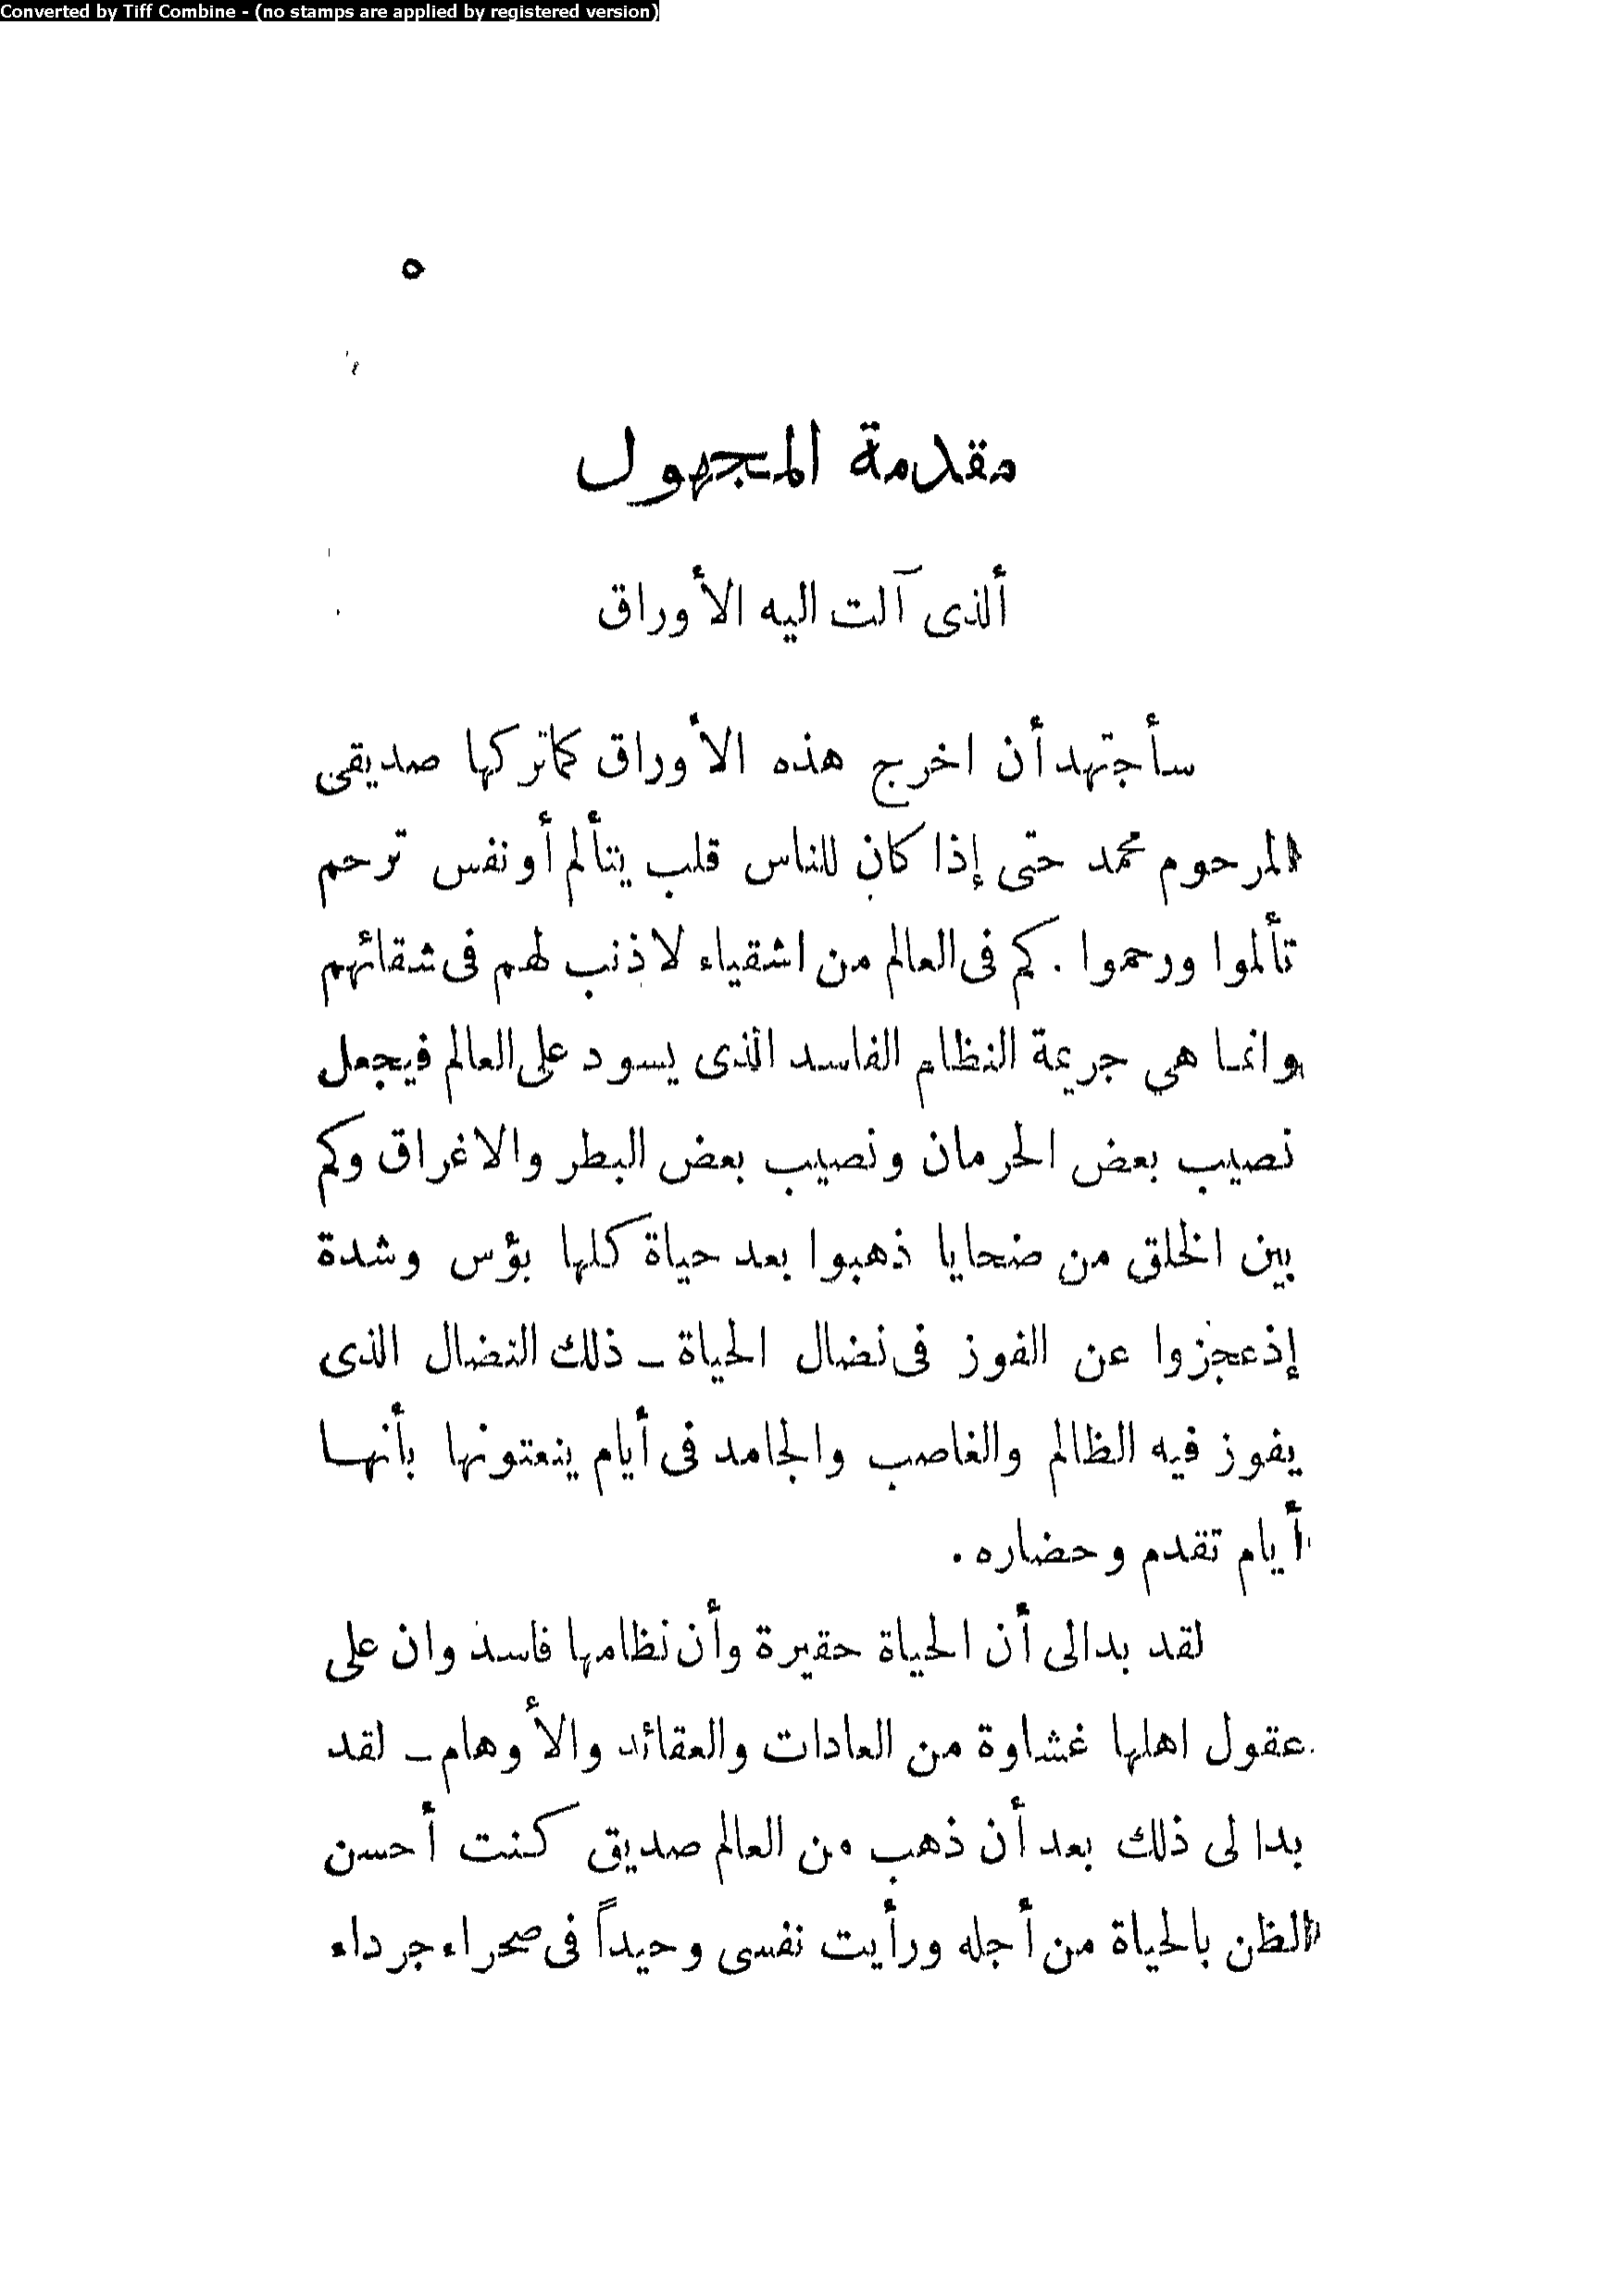 Converted by Tiff Combine - (no stamps are applied by registered version)
٥
مقدمة المجهول
ألذى آلت اليه الأوراق
سأجتهد أن اخرج هذه الأوراق كما تركها صديقى
المرحوم محمد حتى إذا كان للناس قلب يتألم أو نفس ترحم
تألموا ورحموا . كم فى العالم من اشقياء لا ذنب لهم فى شقائهم
وانما هي جريمة النظام الفاسد الذى يسود على العالم فيجعل
نصيب بعض الحرمان ونصيب بعض البطر والاغراق وكم
بين الخلق من ضحايا ذهبوا بعد حياة كلها بؤس وشدة
إذ عجزوا عن الفوز فى نضال الحياة ـ ذلك النضال الذى
يفوز فيه الظالم والغاصب والجامد فى أيام ينعتونها بأنها
أيام تقدم وحضاره .
لقد بدالى أن الحياة حقيرة وأن نظامها فاسد وان على
عقول اهلها غشاوة من العادات والعقائد والأوهام ـ لقد
بدا لى ذلك بعد أن ذهب من العالم صديق كنت أحسن
الظن بالحياة من أجله ورأيت نفسى وحيداً فى صحراء جرداء